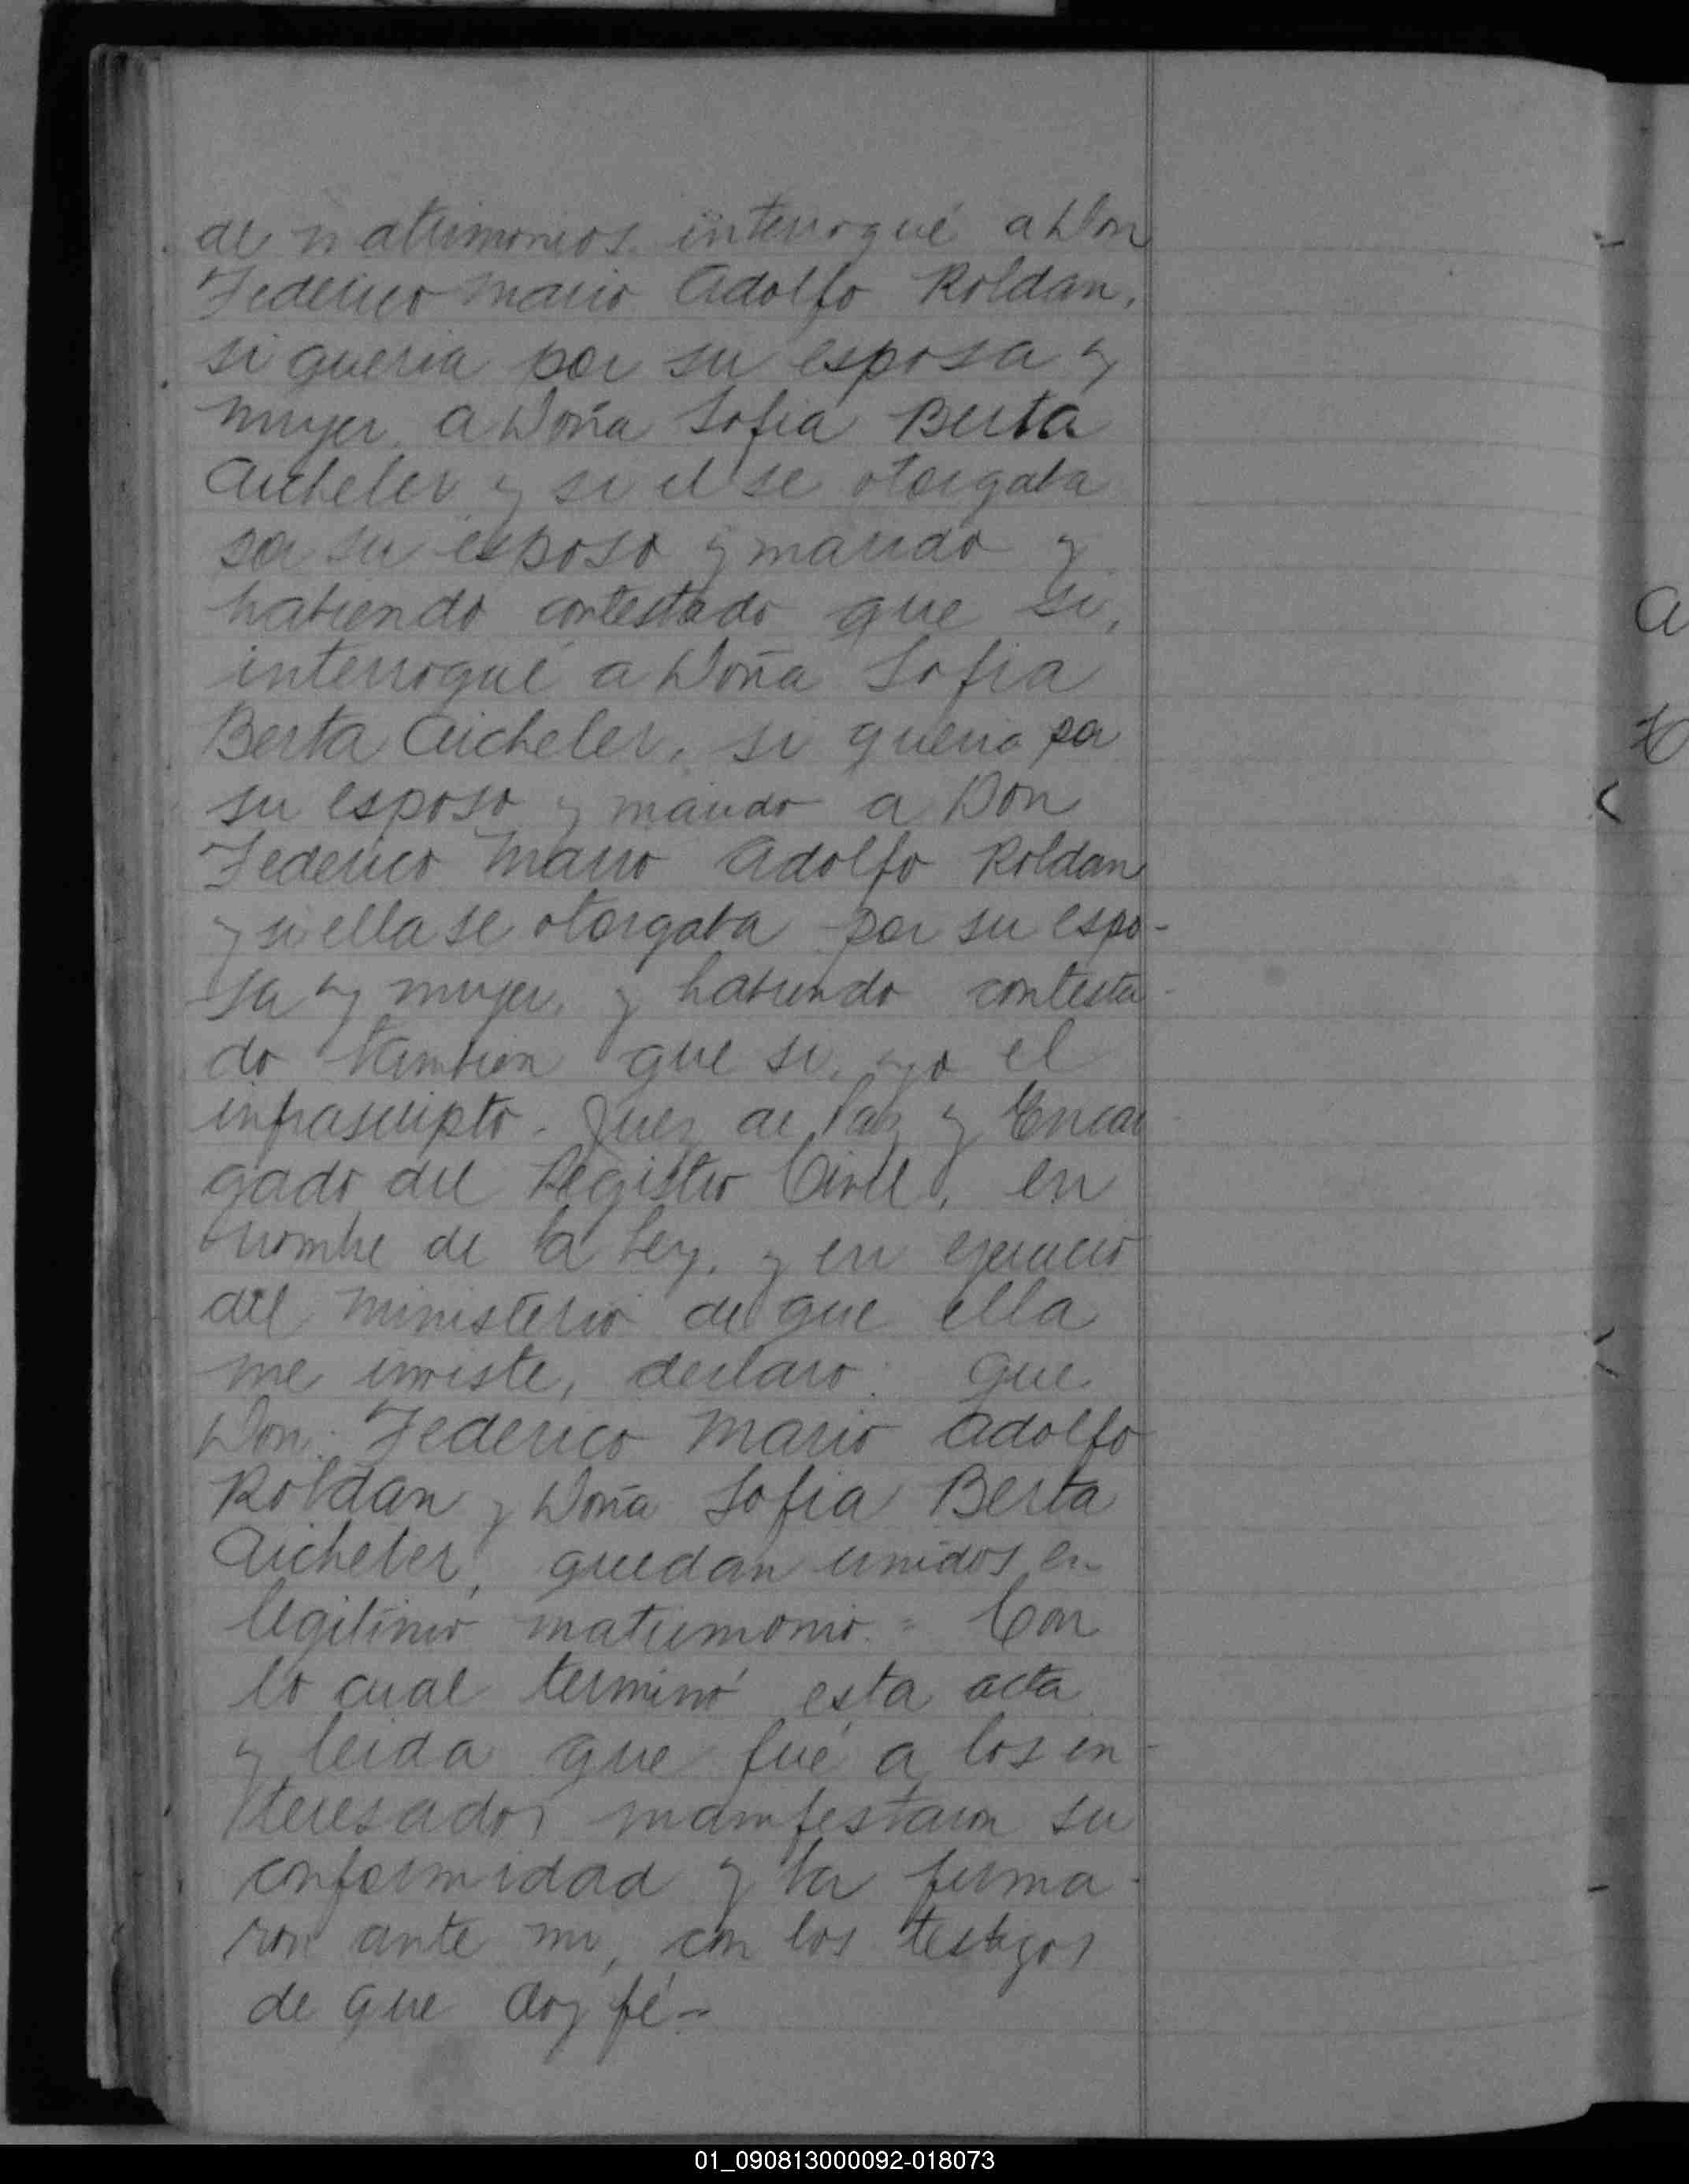 de matrimonios. interrogué a Don
Federico Mario Adolfo Roldan,
si queria por su esposa y
mujer a Doña Sofia Berta
Aicheler y si el se otorgaba
por su esposo y marido y
habiendo contestado que si,
interrogué a Doña Sofia
Berta Aicheler, si queria por
su esposo y marido a Don
Federico Mario Adolfo Roldan
y si ella se otorgaba por su espo-
sa y mujer, y habiendo contesta-
do tambien que si, yo el
infrascripto. Juez de Paz y Encar
gado del Registro Civil, en
nombre de la Ley, y en ejercicio
del ministerio de que ella
me inviste, declaro: que
Don: Federico Mario Adolfo
Roldan y Doña Sofia Berta
Aicheler, quedan unidos en
legitimo matrimonio = Con
lo cual terminó esta acta
y leida que fué a los in-
teresados manifestaron su
conformidad y la firma-
ron ante mi, con los testigos
de que doy fé-
01_090813000092-018073